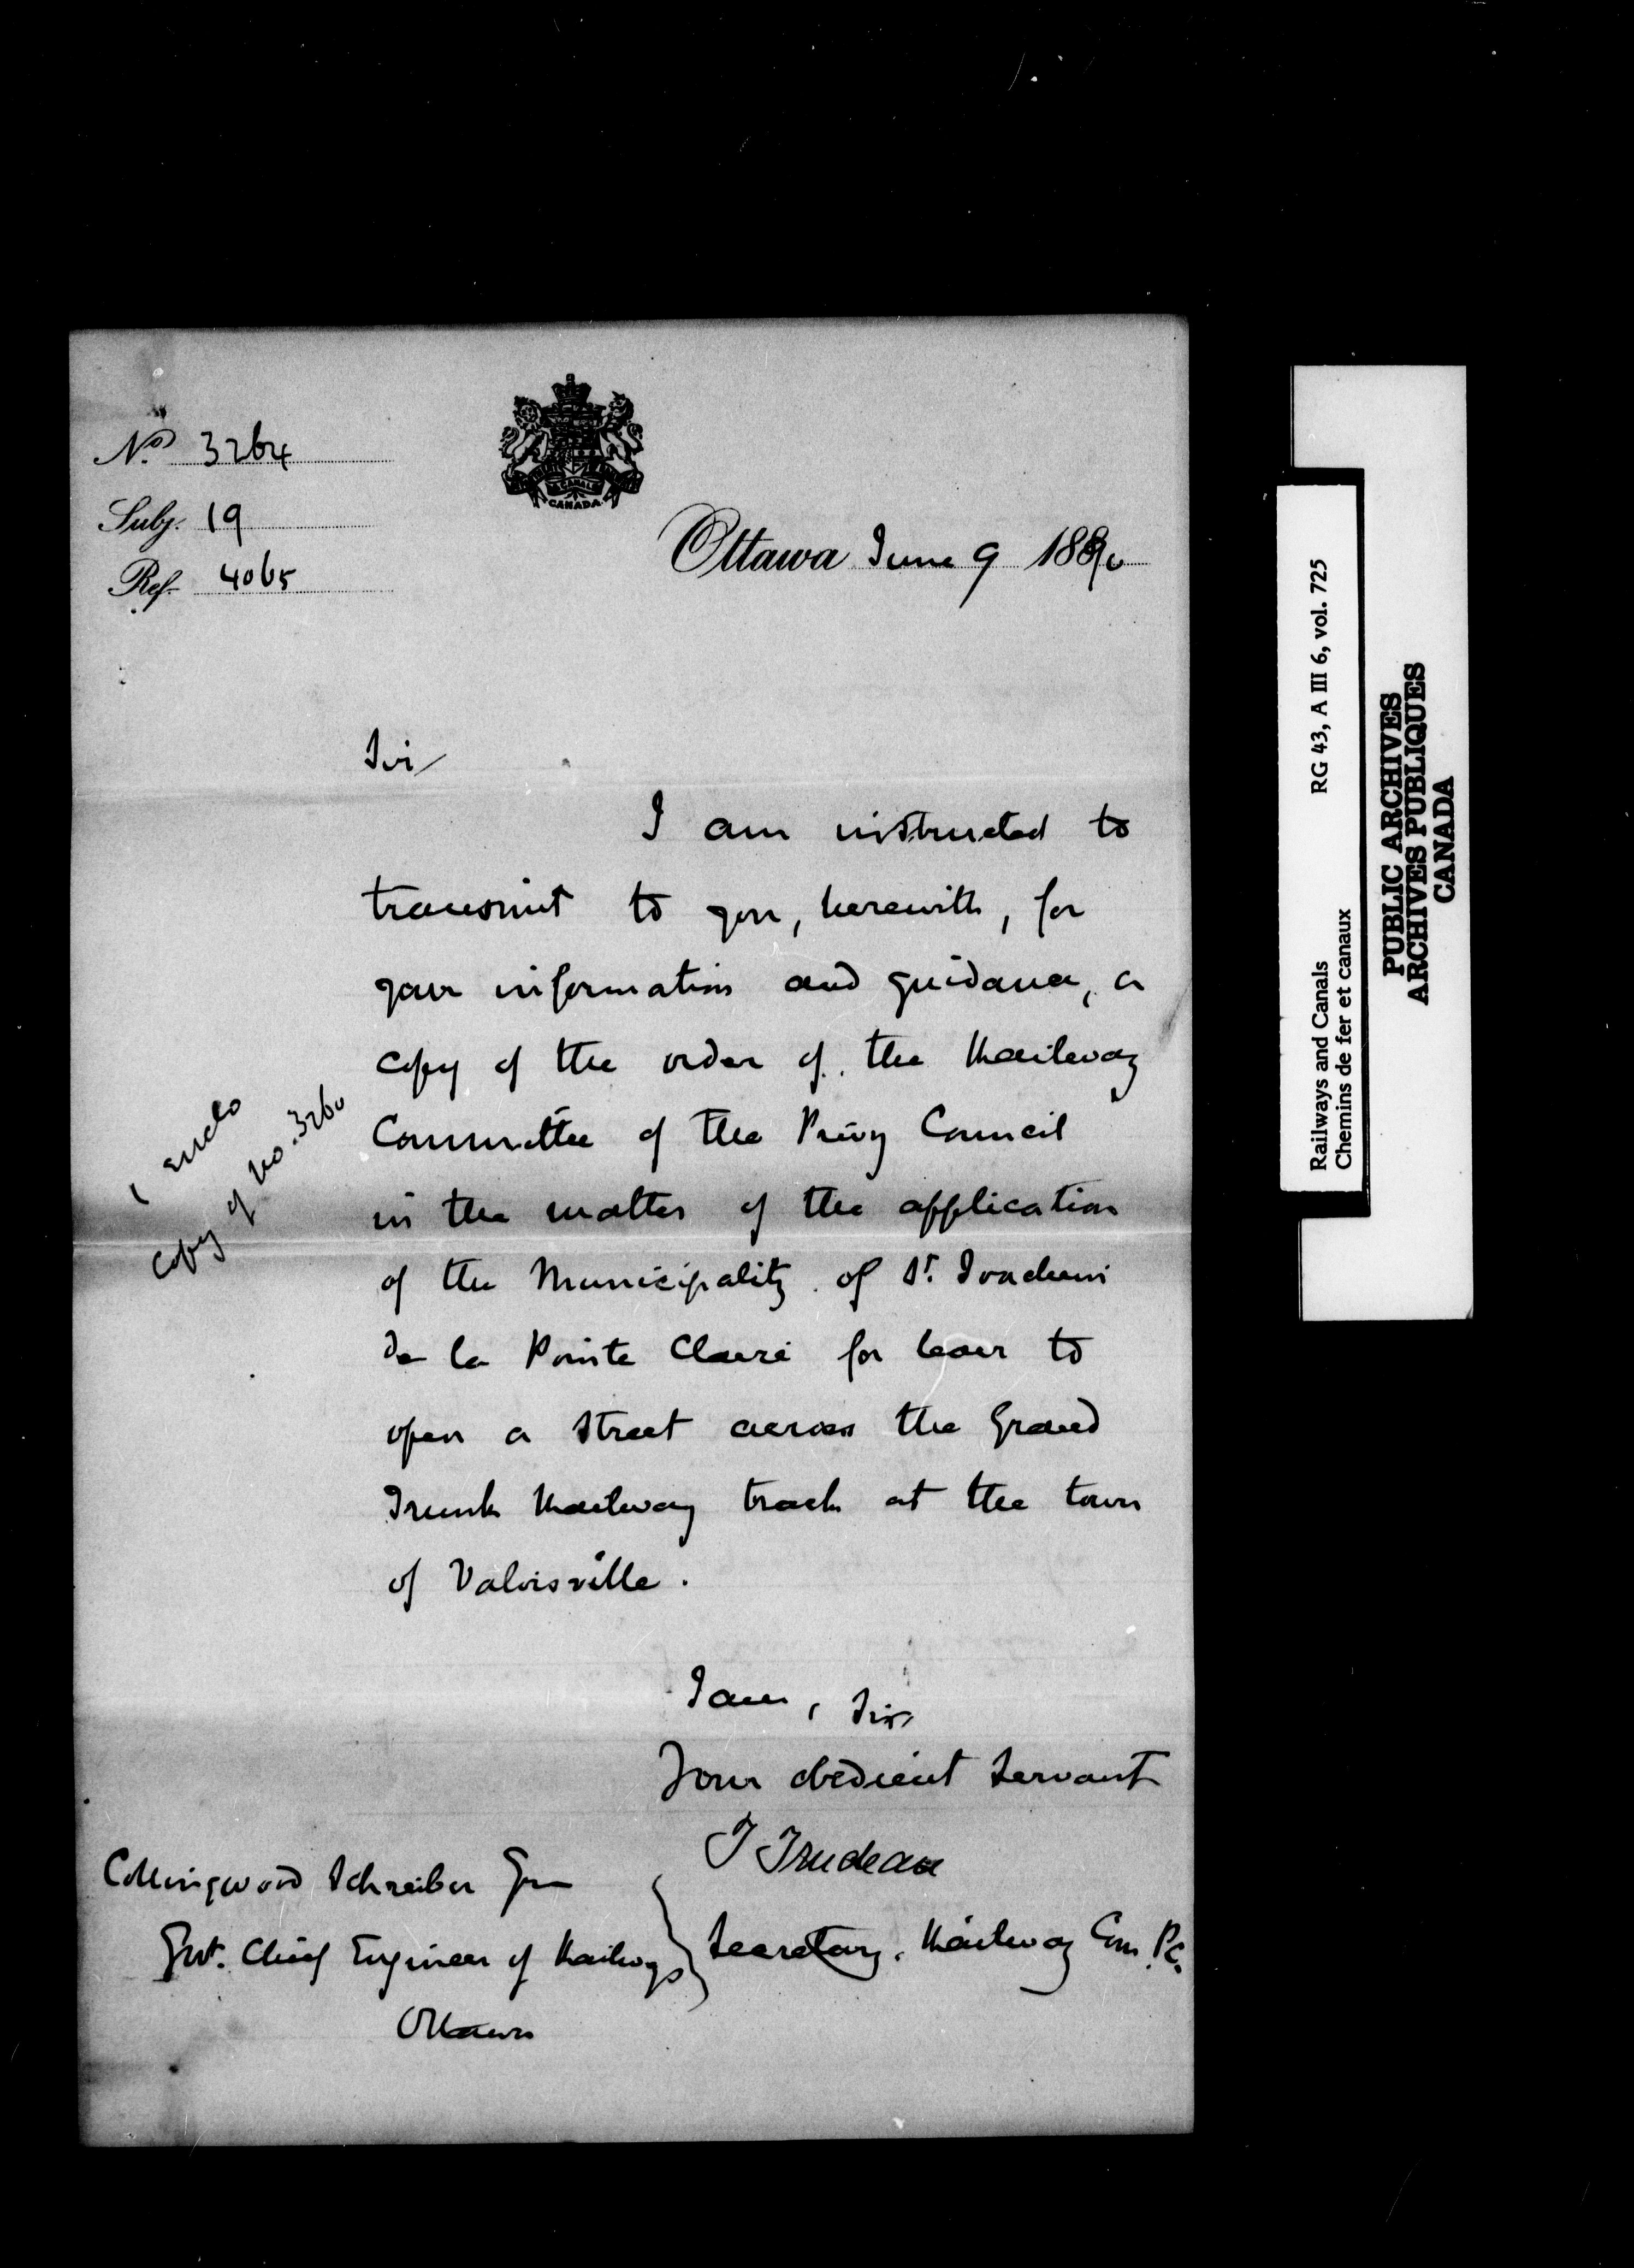 No. 3264
Subj. 19
Ref. 4065
CANADA
Ottawa June 9 1890
Sir
I am instructed to
transmit to you, herewith, for
your information and guidance, a
copy of the order of the Railway
Committee of the Privy Council
in the matter of the application
of the Municipality of St. Joachim
de la Pointe Claire for leave to
open a street across the Grand
Trunk Railway track at the town
of Valoisville.
1 enclo
copy of no. 3260
I am, Sir
Your obedient servant
T Trudeau
Secretary. Railway Com. P.C.
Collingwood Schreiber Esq
Govt. Chief Engineer of Railways
Ottawa
Railways and Canals RG 43, A III 6, vol. 725
Chemins de fer et canaux
PUBLIC ARCHIVES
ARCHIVES PUBLIQUES
CANADA